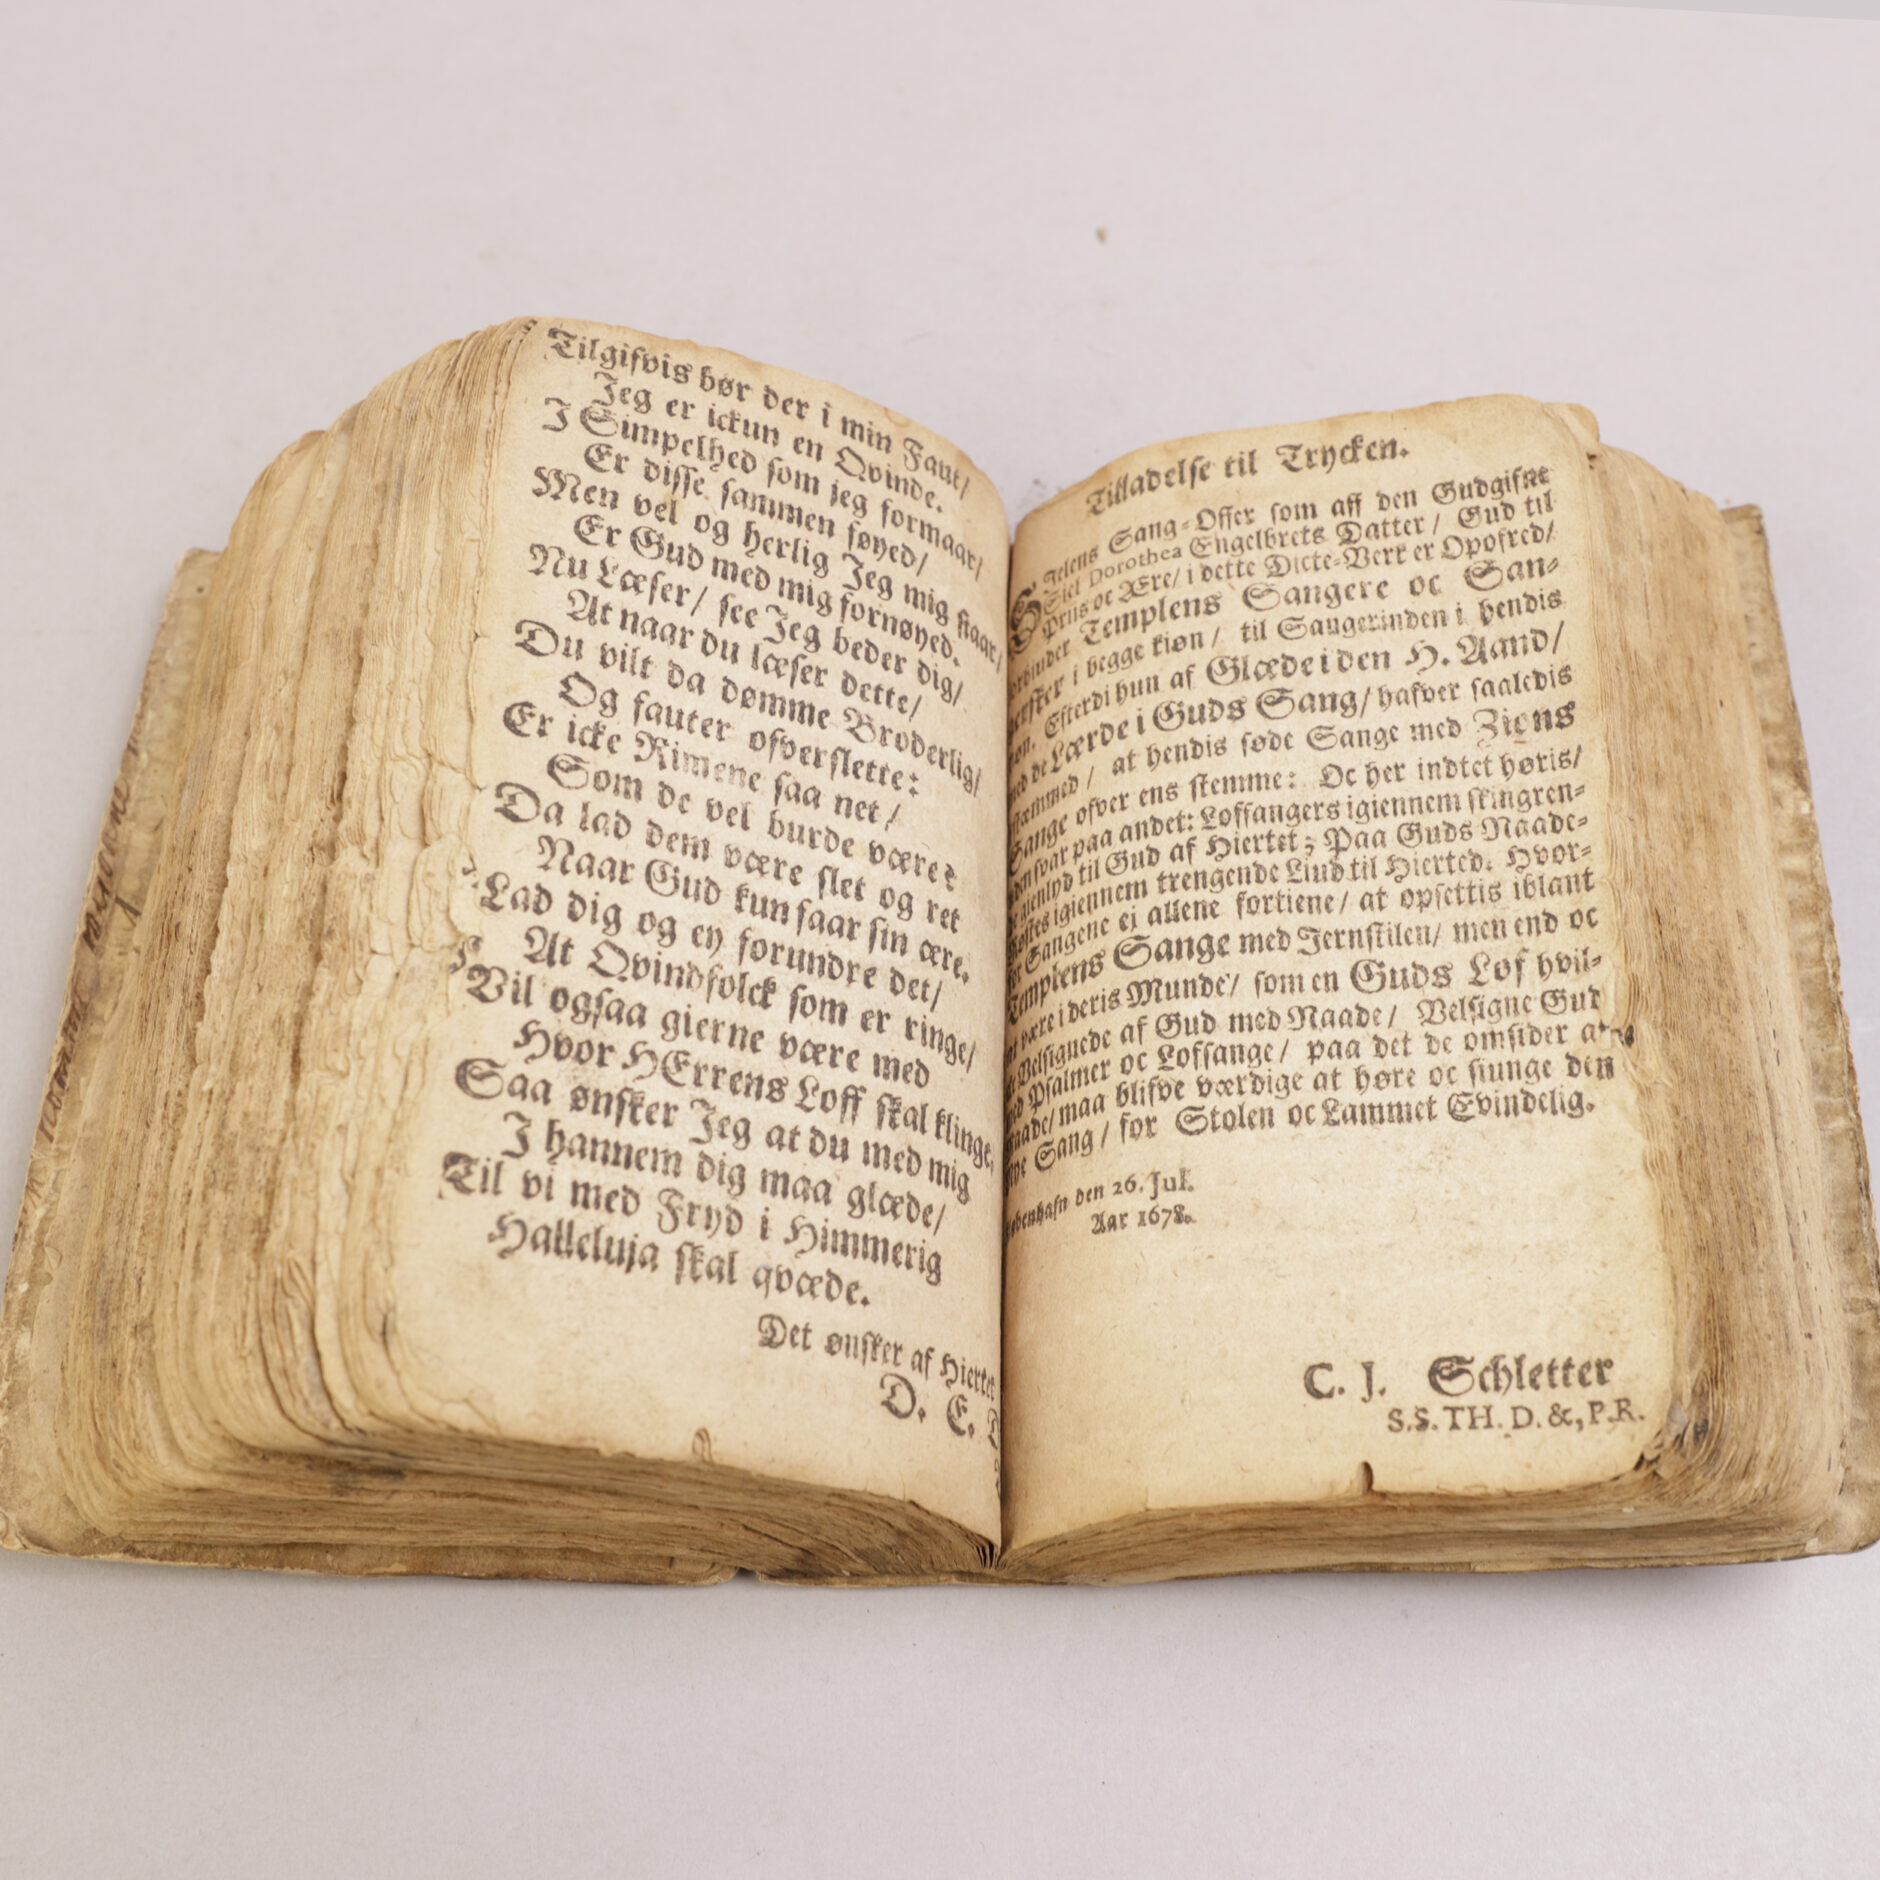 Tilgifvis bør der i min Faut/
Jeg er ickun en Qvinde.
I Simpelhed som jeg formaar/
Er disse sammen føyed/
Men vel og herlig Jeg mig staar/
Er Gud med mig fornøyed.
Nu Læser/ see Jeg beder dig/
At naar du læser dette/
Du vilt da dømme Broderlig/
Og fauter ofverslette:
Er icke Rimene saa net/
Som de vel burde være?
Da lad dem være slet og ret
Naar Gud kun faar sin ære.
Lad dig og ey forundre det/
At Qvindfolck som er ringe/
Vil ogsaa gierne være med
Hvor HErrens Loff skal klinge,
Saa ønsker Jeg at du med mig
I hannem dig maa glæde/
Til vi med Fryd i Himmerig
Halleluja skal qvæde.
Det ønsker af Hiertet
D. E. D
Tilladelse til Trycken.
Sielens Sang-Offer som aff den Gudgifne
Siel Dorothea Engelbrets Datter/ Gud til
Priis oc Ære/ i dette Dicte-Verk er Opofred/
Templens Sangere oc San-
i begge kiøn/ til Saugerinden i hendis
Efterdi hun af Glæde i den H. Aand/
med de Lærde i Guds Sang/ hafver saaledis
at hendis søde Sange med Zions
Sange ofver ens stemme: Oc her indtet høris/
svar paa andet: Loffangers igiennem skingren-
gienlyd til Gud af Hiertet; Paa Guds Naade-
igiennem trengende Liud til Hierted. Hvor-
for Sangene ei allene fortiene/ at opsettis iblant
Templens Sange med Jernstilen/ men end oc
at være i deris Munde/ som en Guds Lof hvil-
Velsignede af Gud med Naade/ Velsigne Gud
med Psalmer oc Lofsange/ paa det de omsider af
Naade/ maa blifve værdige at høre oc siunge den
Sang/ for Stolen oc Lammet Evindelig.
den 26. Jul.
Aar 1678.
C. J. Schletter
S.S. TH. D. &, P.R.